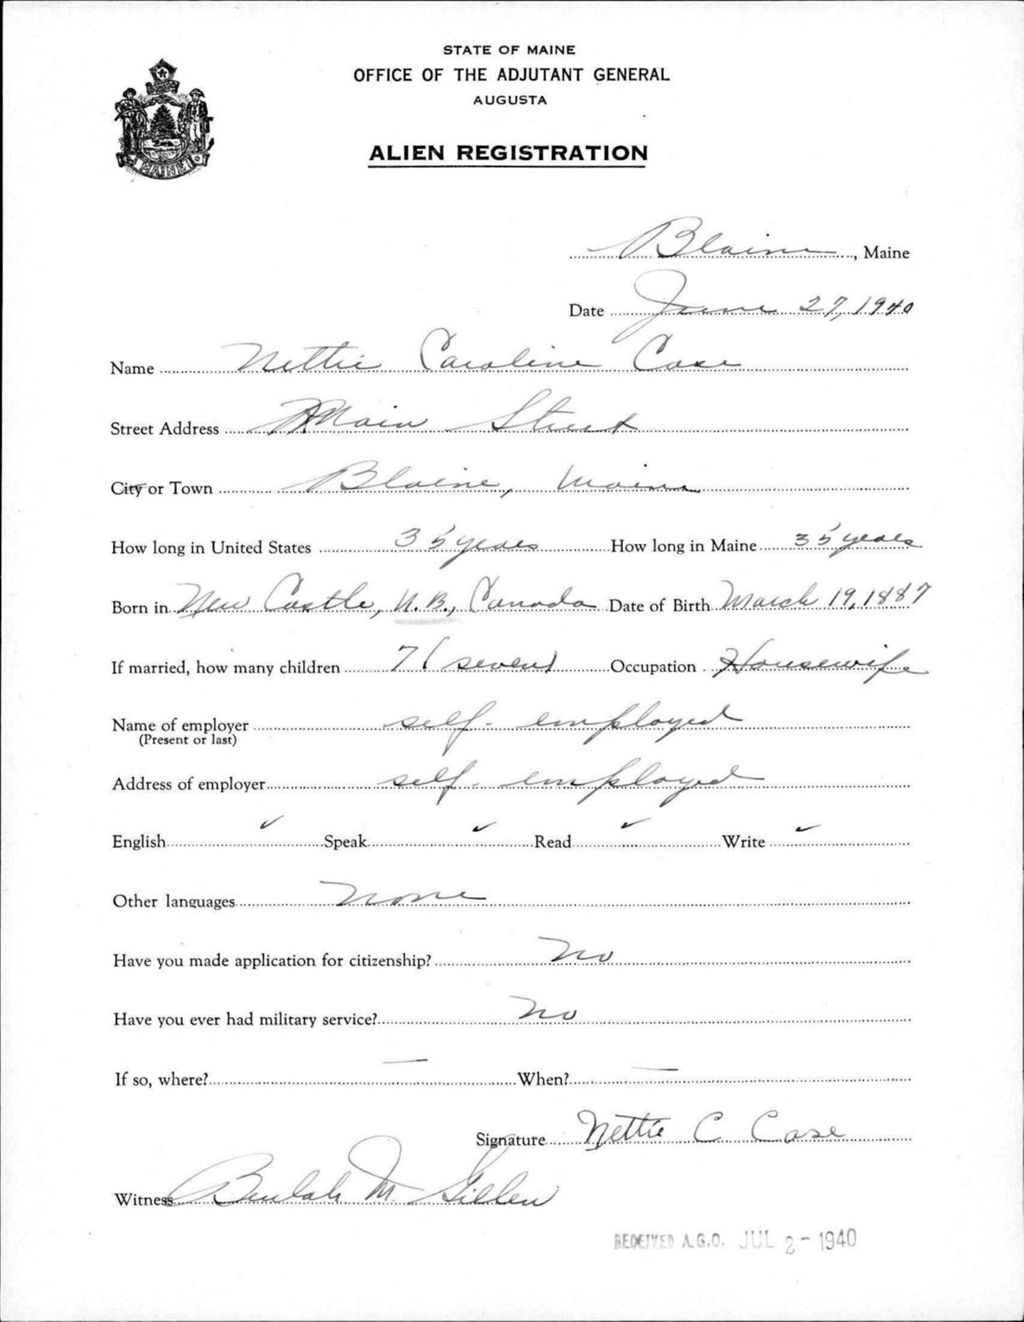 STATE OF MAINE
OFFICE OF THE ADJUTANT GENERAL
AUGUSTA
ALIEN REGISTRATION
MAINE
Blaine, Maine
Date June 27, 1940
Name Nettie Caroline Case
Street Address Main Street
City or Town Blaine, Maine
How long in United States 35 years How long in Maine 35 years
Born in New Castle, N.B., Canada Date of Birth March 19, 1887
If married, how many children 7 (seven) Occupation Housewife
Name of employer self-employed
(Present or last)
Address of employer self-employed
English ✓ Speak ✓ Read ✓ Write ✓
Other languages none
Have you made application for citizenship? No
Have you ever had military service? No
If so, where? — When? —
Signature Nettie C. Case
Witness Beulah M. Gillen
RECEIVED A.G.O. JUL 2 - 1940